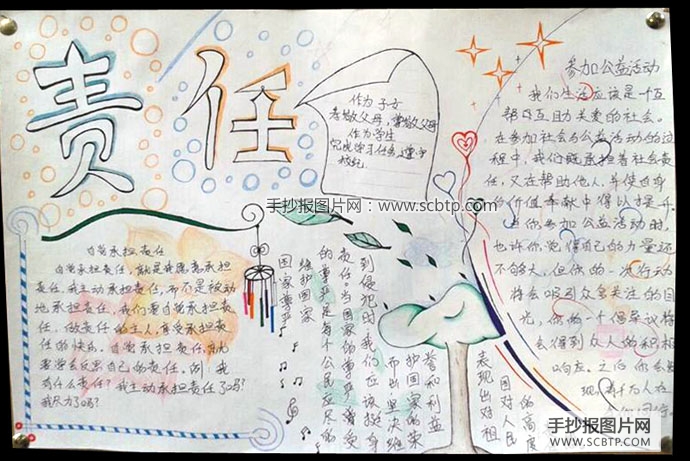 责任
作为子女
孝敬父母，尊敬父母
作为学生
完成学习任务，遵守
校纪
手抄报图片网：www.scbtp.com
自觉承担责任
自觉承担责任，就是我愿意承担
责任，我主动承担责任，而不是被动
地承担责任。我们要自觉承担责
任，做责任的主人，享受承担责任
任的快乐。自觉承担责任，就
要学会反思自己的责任，例：我
有什么责任？我主动承担责任了吗？
我尽力了吗？
国家尊严
维护国家
的尊严是每个公民应尽的
责任。当国家的尊严遭受
到侵犯时，我们应该挺身
而出坚决维
护国家的荣
誉和利益
表现出对祖
国对人民
的高度
参加公益活动
我们生活应该是个互
帮互助关爱的社会。
在参加社会与公益活动的过
程中，我们既承担着社会责
任，又在帮助他人，并使自身
的价值奉献中得以提升。
当你参加公益活动时，
也许你觉得自己的力量还
不够大，但你的一次行动
将会吸引众多关注的目
光，你的一个倡议将
会得到众人的积极
响应。之后你会发
现有千万人在
手抄报图片网
WWW.SCBTP.COM